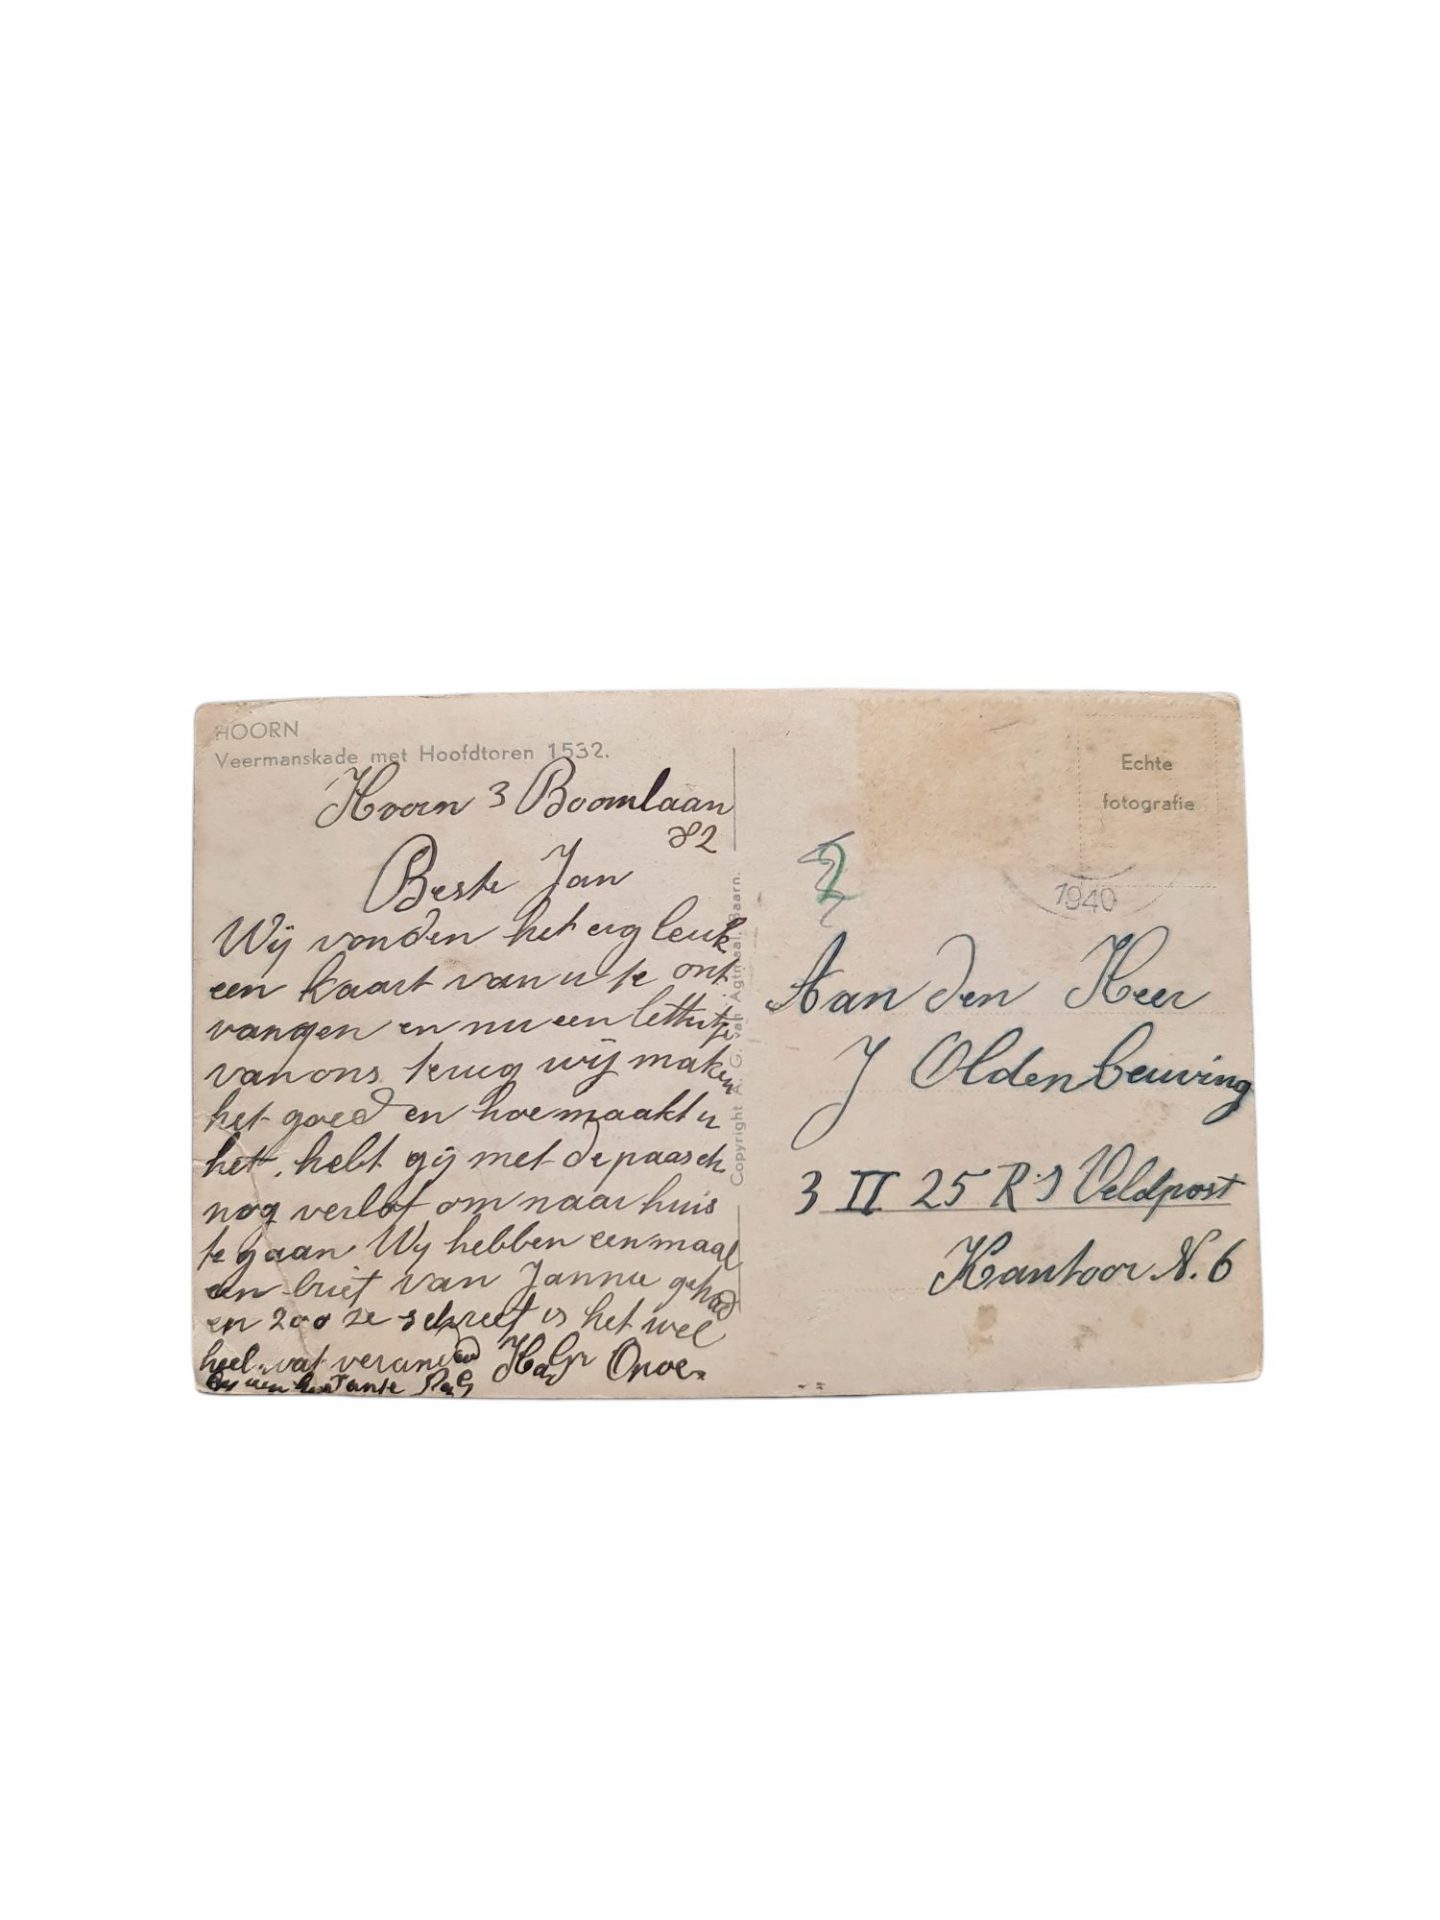 HOORN
Veermanskade met Hoofdtoren 1532.
Hoorn 3 Boomlaan
82
Beste Jan
Wij vonden het erg leuk
een kaart van u te ont
vangen en nu een lettertje
van ons terug wij maken
het goed en hoe maakt u
het. hebt gij met de paasch
nog verlof om naar huis
te gaan Wij hebben eenmaal
een brief van Jannie gehad
en zoo ze schreef is het wel
heel wat veranderd
Tante
Copyright A. G. van Agtmaal, Baarn.
Echte
fotografie
1940
2
Aan den Heer
J Oldenbeuving
3 II 25 R.I Veldpost
Kantoor N. 6